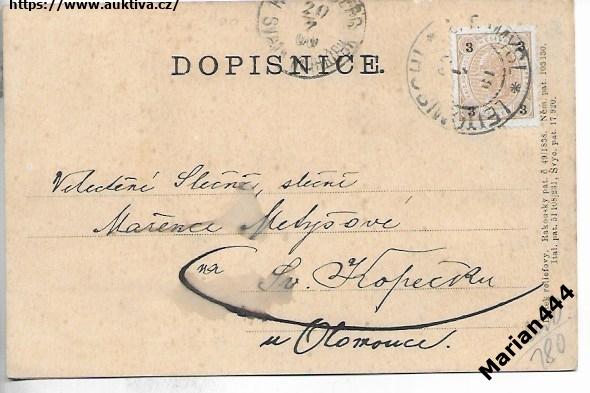 https://www.auktiva.cz/
DOPISNICE.
3 3
3 3
LEITOMISCHL
Velectění Slečně, slečně
Mařence Metyšové
na Sv. Kopečku
u Olomouce.
reliefovy. Rakouský pat. č 49/1838. Něm. pat. 105130.
Ital. pat. 51 108/231, Švýc. pat. 17 920.
180
Marian444